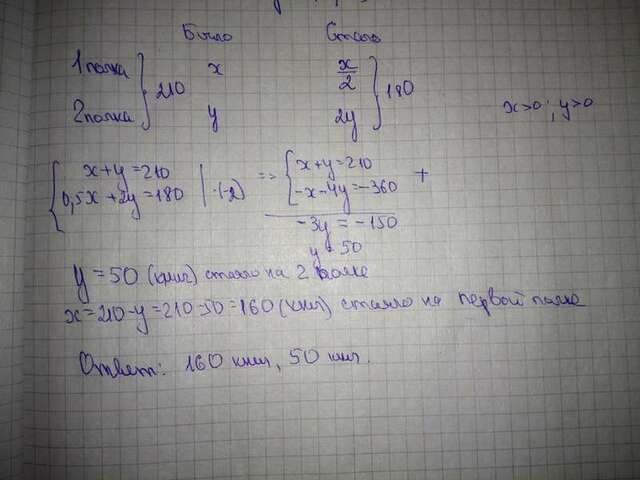 Было Стало
1 полка } 210 x x/2 } 180 x>0; y>0
2 полка y 2y
{ x+y=210
0,5x+2y=180 | ·(-2) = { x+y=210
-x-4y=-360 +
-3y=-150
y=50
y=50 (книг) стояло на 2 полке
x=210-y=210-50=160 (книг) стояло на первой полке
Ответ: 160 книг, 50 книг.